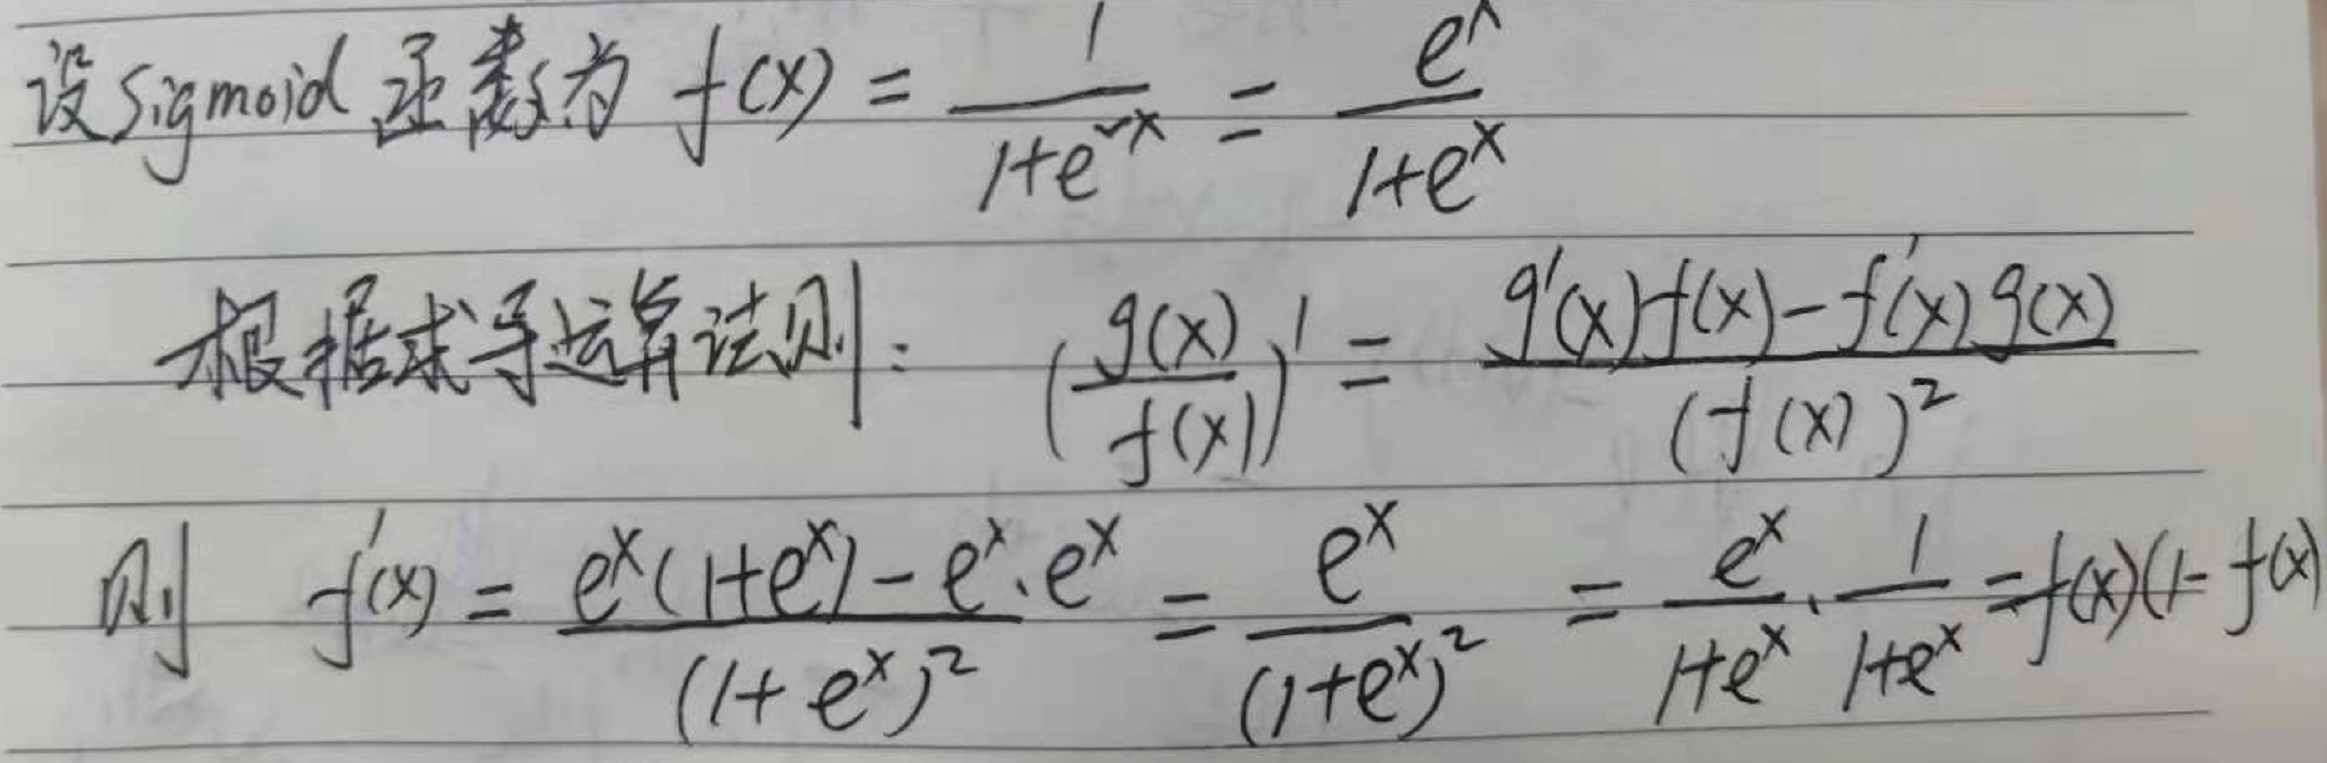 设Sigmoid函数为 f(x) = \frac{1}{1+e^{-x}} = \frac{e^x}{1+e^x}
根据求导运算法则: (\frac{g(x)}{f(x)})' = \frac{g'(x)f(x)-f'(x)g(x)}{(f(x))^2}
则 f'(x) = \frac{e^x(1+e^x)-e^x·e^x}{(1+e^x)^2} = \frac{e^x}{(1+e^x)^2} = \frac{e^x}{1+e^x}·\frac{1}{1+e^x} = f(x)(1-f(x)